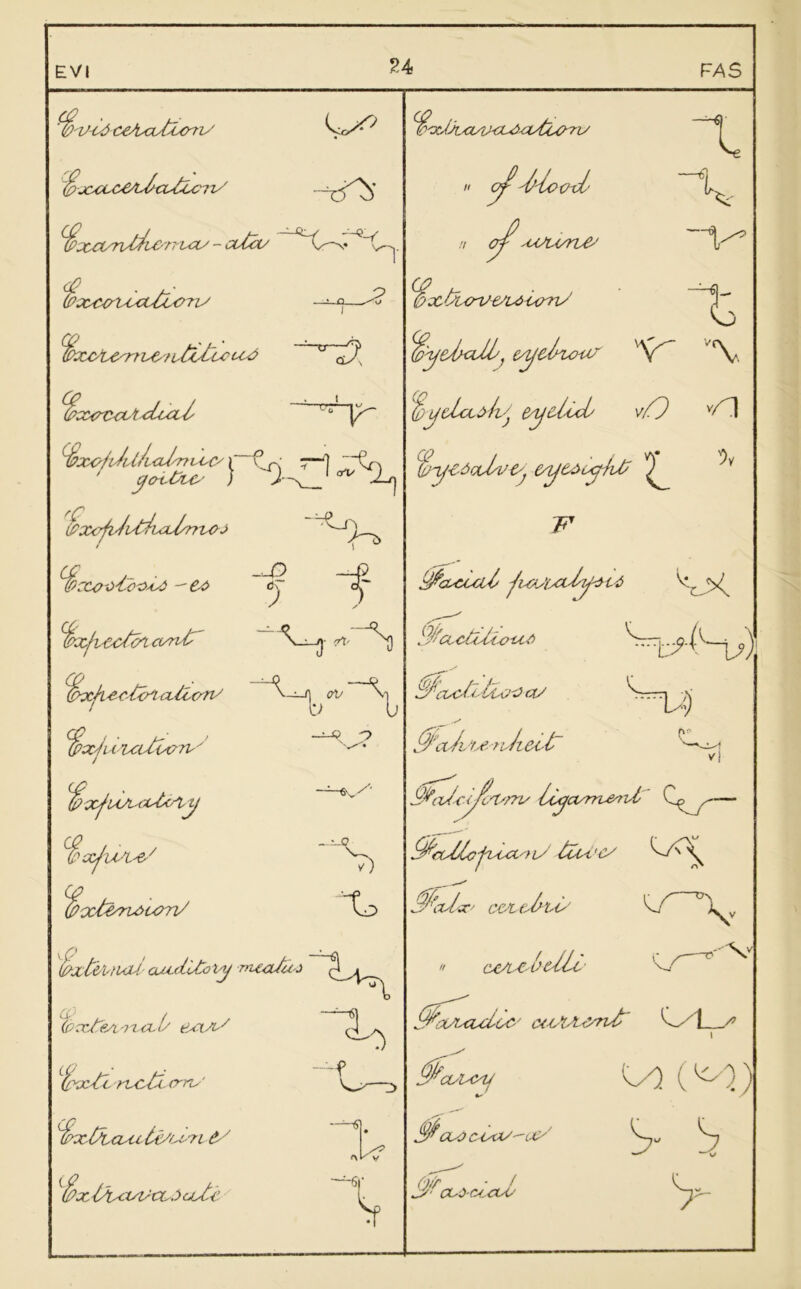 EVI 24 FAS
Evisceration
Exacerbation
Exanthema-ata
Excoriation
Exrementitious
Exocardial
Exophthalmic
goitre } or
Exophthalmos
Exostosis - es
Expectorant or
Expectoration or
Expiration
Expiratory
Expire
Extension
External auditory meatus
External ear
Extinction
Extrauterine
Extravasate
Extravasation
" of blood
" of urine
Extroversion
Eyeball, eyebrow
Eyelash, eyelid
Eyesalve, eyesight
F
Facial paralysis
Factitious
Factitiosa
Fahrenheit
Falciform ligament
Fallopian tube
Falx cerebri
" cerebelli
Faradic current
Farcy
Fascia-æ
Fascial